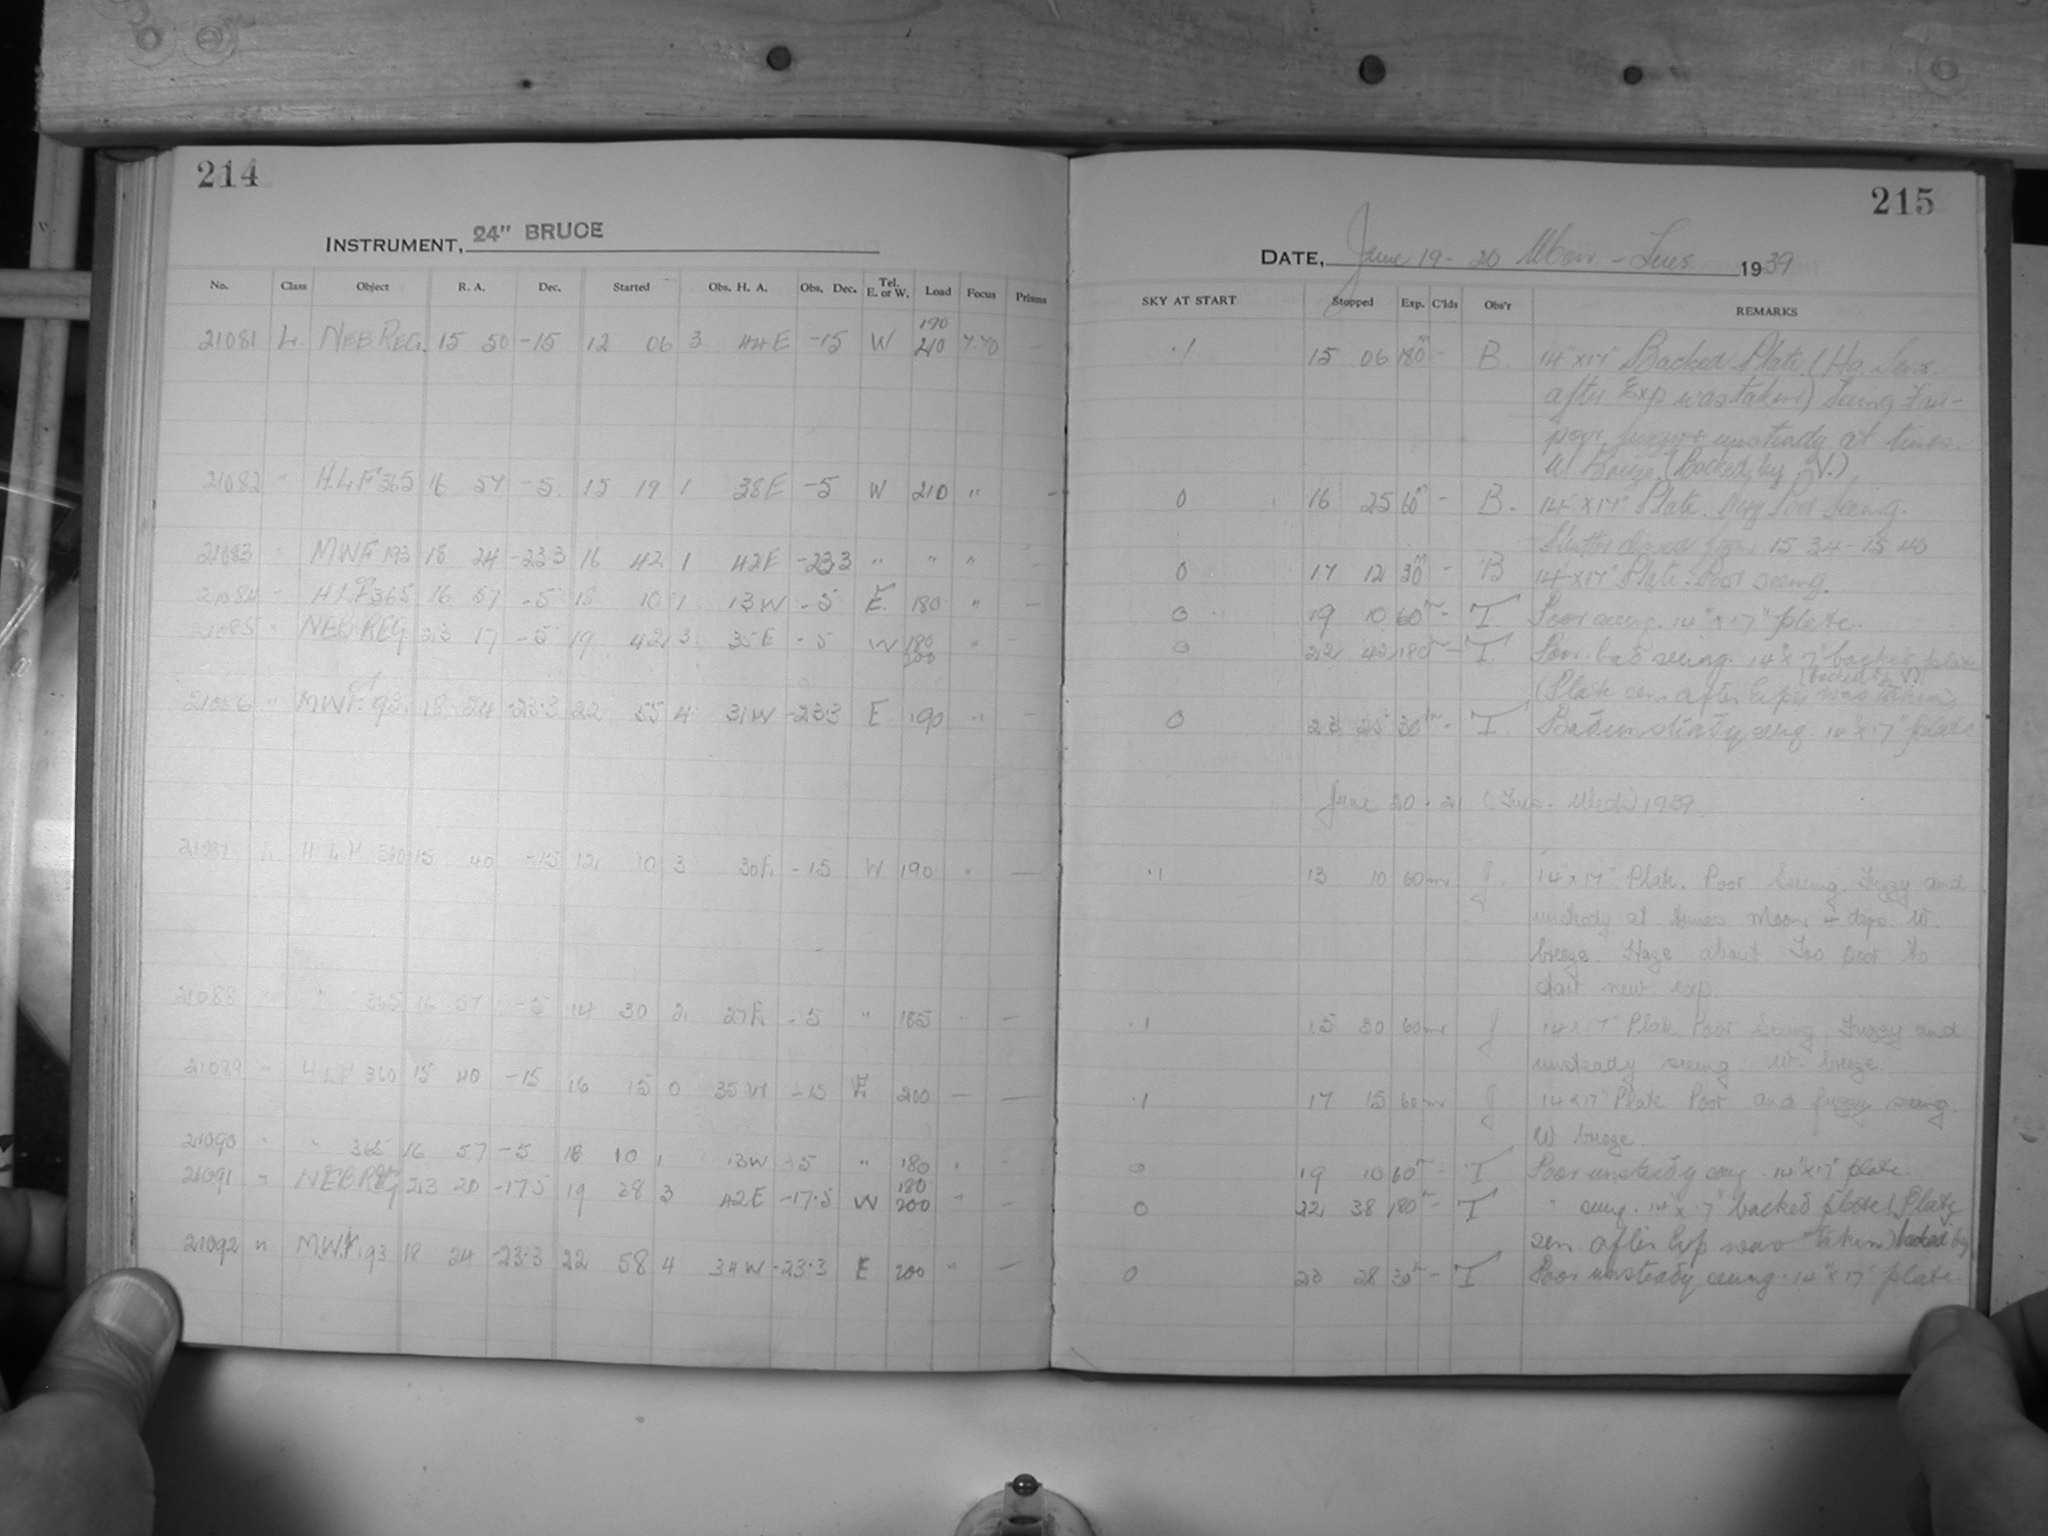 214
INSTRUMENT, 24" BRUCE
No. Class Object R. A. Dec. Started Obs. H. A. Obs. Dec. Tel. E. or W. Load Focus Prisms
21081 L. NEB REG. 15 50 -15 12 06 3 44 E -15 W 190 210 7.70 -
21082 " H.L.F 365 16 57 -5 15 19 1 38 E -5 W 210 " -
21083 " MWF 193 18 24 -23.3 16 42 1 42 E -23.3 " " "
21084 " HLF 365 16 57 -5 18 10 1 13 W -5 E 180 " -
21085 " NEB REG 23 17 -5 19 42 3 35 E -5 W 180 200 " -
21086 " MWF 193 18 24 -23.3 22 55 4 31 W -23.3 E 190 " -
21087 L H L F 360 15 40 -15 12 10 3 30 E -15 W 190 " -
21088 " " 365 16 57 -5 14 30 2 27 E -5 " 185 " -
21089 " HLF 360 15 40 -15 16 15 0 35 W -15 E 200 - -
21090 " " 365 16 57 -5 18 10 1 13 W -5 " 180 " -
21091 " NEB REG 23 20 -17.5 19 38 3 42 E -17.5 W 180 200 " -
21092 " M.W.F 193 18 24 -23.3 22 58 4 34 W -23.3 E 200 " -
215
DATE, June 19 - 20 Mon. - Tues 1939
SKY AT START Stopped Exp. C'lds Obs'r REMARKS
.1 15 06 180m - B. 14" x 17" Backed Plate (Ha. Sens.
after Exp was taken) Seeing Fair -
poor, fuzzy + unsteady at times.
W Breeze. (Backed by V.)
0 16 25 60m - B. 14" x 17" Plate. Very Poor Seeing.
Shutter closed from 15 34 - 15 40
0 17 12 30m - B 14" x 17" Plate. Poor seeing.
0 19 10 60m - T Poor seeing. 14" x 17" plate.
0 22 42 180m - T Poor - bad seeing. 14" x 17" backed plate
(backed by V)
(Plate sens after Exp was taken)
0 23 25 30m - T Bad unsteady seeing. 14" x 17" plate
June 20 - 21 (Tues - Weds) 1939
.1 13 10 60m J. 14" x 17" Plate. Poor Seeing. Fuzzy and
unsteady at times Moon 4 days. W.
breeze. Haze about Too poor to
start new exp.
.1 15 30 60m J 14 x 17 Plate Poor Seeing Fuzzy and
unsteady seeing W. breeze.
.1 17 15 60m J 14 x 17 Plate Poor and fuzzy seeing.
W breeze.
0 19 10 60m - T Poor unsteady seeing. 14" x 17" plate.
0 22 38 180m - T " seeing. 14" x 17" backed plate (Plate
sen after Exp was taken) backed by V
0 23 28 30m - T Poor unsteady seeing. 14" x 17" plate.